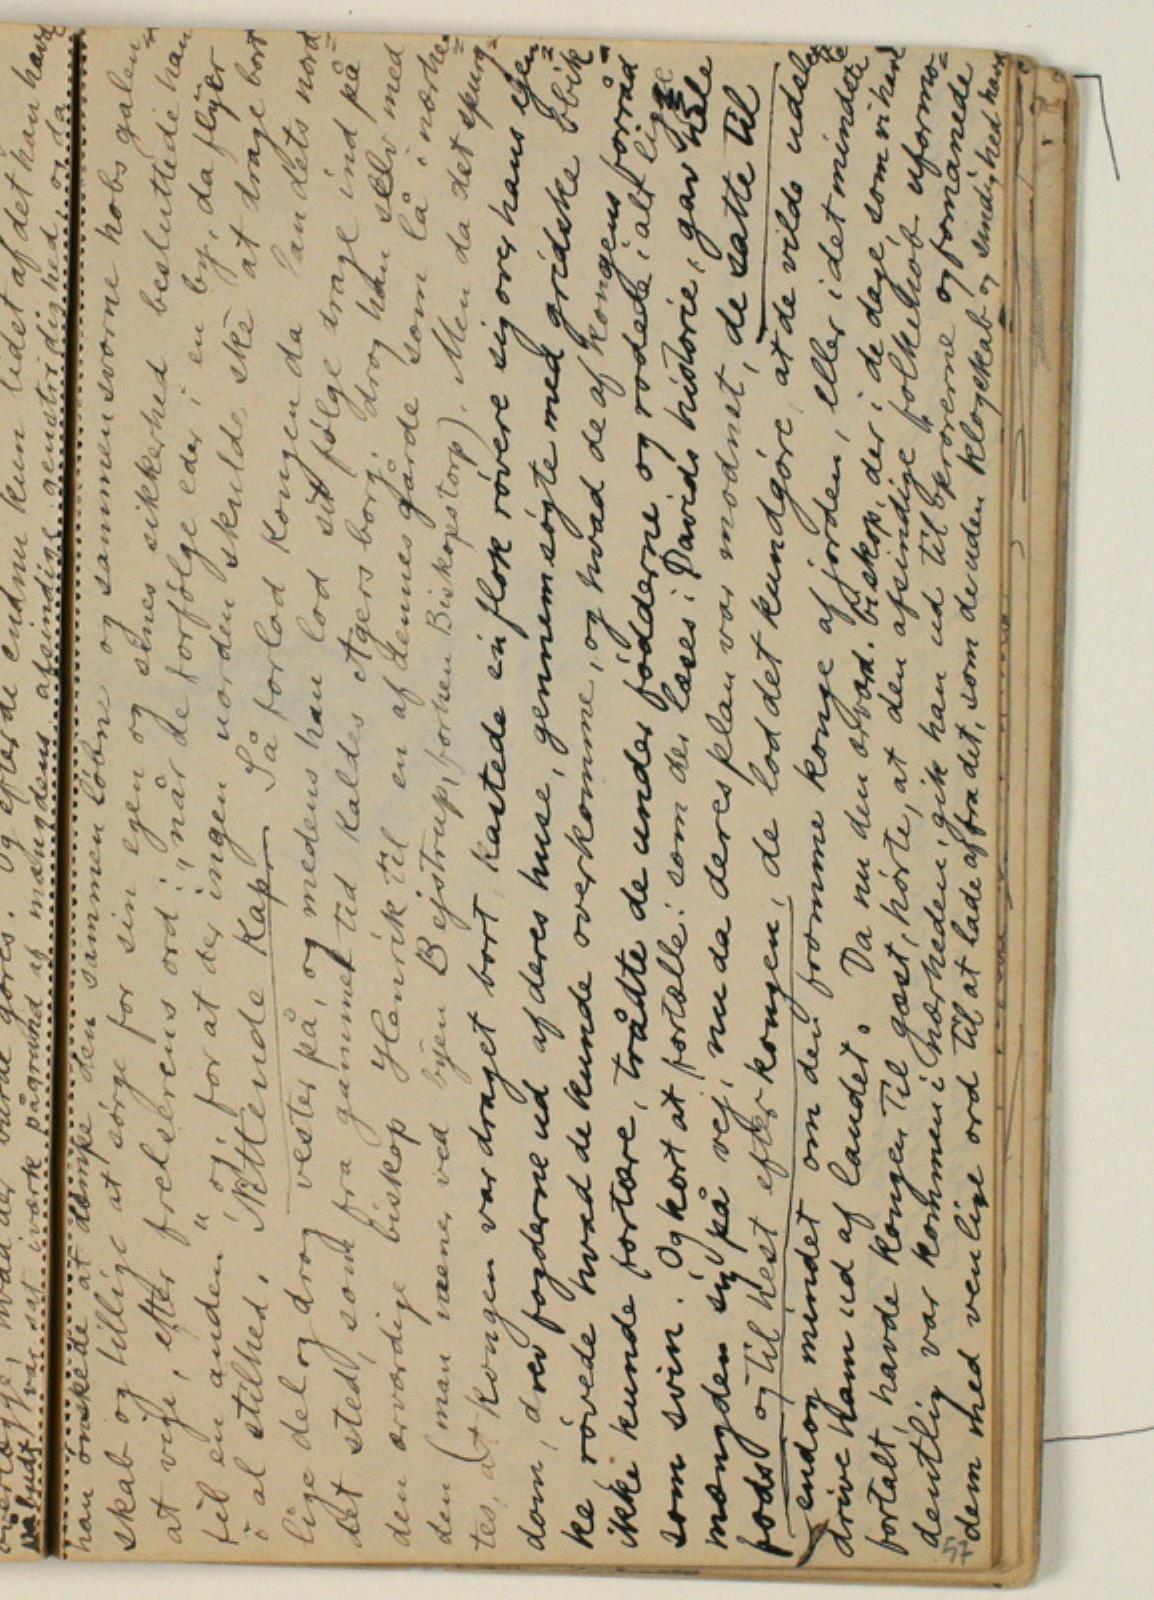 overlægge, hvad der burde gøres. Og efter de endnu kun lidet af det han havde
påbudt var sat i værk på grund af mængdens afsindige genstridighed, og da
han ønskede at dæmpe den sammenløbne og sammensvorne hobs galen-
skab og tillige at sørge for sin egen og sines sikkerhed besluttede han
at vige, efter frelserens ord: "når de forfølge eder i en by, da flyer
til en anden" og for at der ingen uorden skulde ske at drage bort
i al stilhed. Nittende Kap. Så forlod Kongen da landets nord-
lige del og drog vester på, og medens han lod sit følge drage ind på
det sted, som fra gammel tid kaldes Agers borg, drog han selv med
den ærværdige biskop Henrik til en af dennes gårde som lå i nærhe-
den (man mener ved byen Bejstrup, forhen Biskopstorp). Men da det spurg-
tes, at Kongen var draget bort, kastede en flok røvere sig over hans egen-
dom, drev fogderne ud af deres huse, gennemsøgte med gridske blik-
ke røvede hvad de kunde overkomme, og hvad de af kongens forråd
ikke kunde fortære, trådte de under fødderne og rodede i alt lige
som svin. Og kort at fortælle: som der læses i Davids historie, gav hele
mængden sig på vej, nu da deres plan var modnet, de satte til
fods og til hest efter kongen, de lod det kundgøre, at de vilde udslette
endog mindet om den fromme konge af jorden, eller i det mindste
drive ham ud af landet. Da nu den ærvær. biskop, der i de dage, som vi have
fortalt, havde kongen til gæst, hørte, at den afsindige folkehob uformo-
dentlig var kommen i nærheden, gik han ud til oprørerne og formanede
dem med venlige ord til at lade af fra det, som de uden klogskab og sindighed havde
57